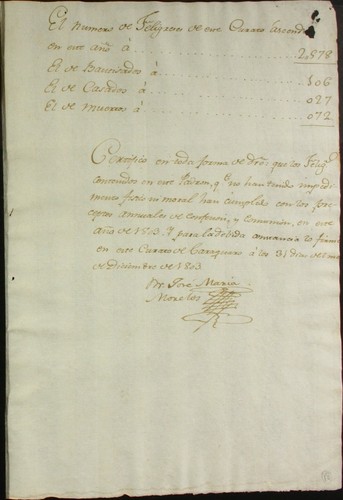 El Numero de Feligreses de este Curato asciende
en este año à . . . . . . . . . . 2,878
El de Bautisados à . . . . . . . . . . 106
El de Casados à . . . . . . . . . . 027
El de Muertos à . . . . . . . . . . 072
Certifico en toda forma de dro. que los Felig.s
contenidos en este Padron, q.e no han tenido impedi-
mento fisico ù moral han cumplido con los pre-
ceptos annuales de confesion, y comunion, en este
año de 1803. Y para la debida constancia lo firmé
en este Curato de Caraquaro à los 31 dias del mes
de Diciembre de 1803
Br. José Maria
Morelos